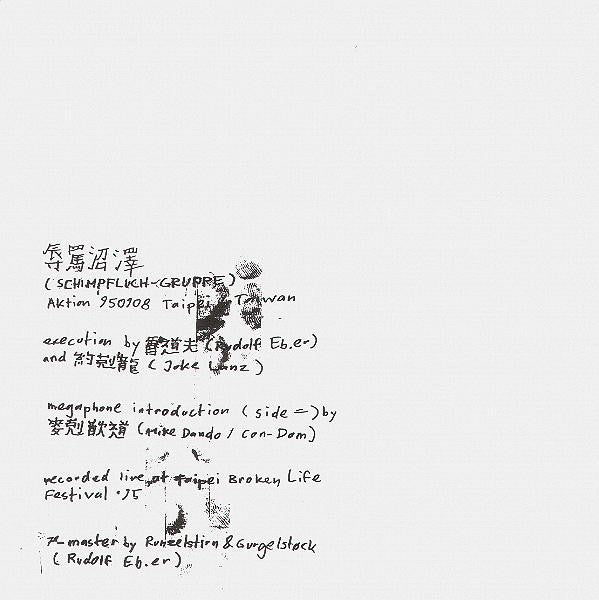 辱罵沼澤
(SCHIMPFLUCH-GRUPPE)
Aktion 950908 Taipei Taiwan
execution by 雷道夫 (Rudolf Eb.er)
and 約剋龍 (Joke Lanz)
megaphone introduction (side =) by
麥剋歎道 (Mike Dando / Con-Dom)
recorded live at Taipei Broken Life
Festival '95
master by Runzelstirn & Gurgelstøck
(Rudolf Eb.er)